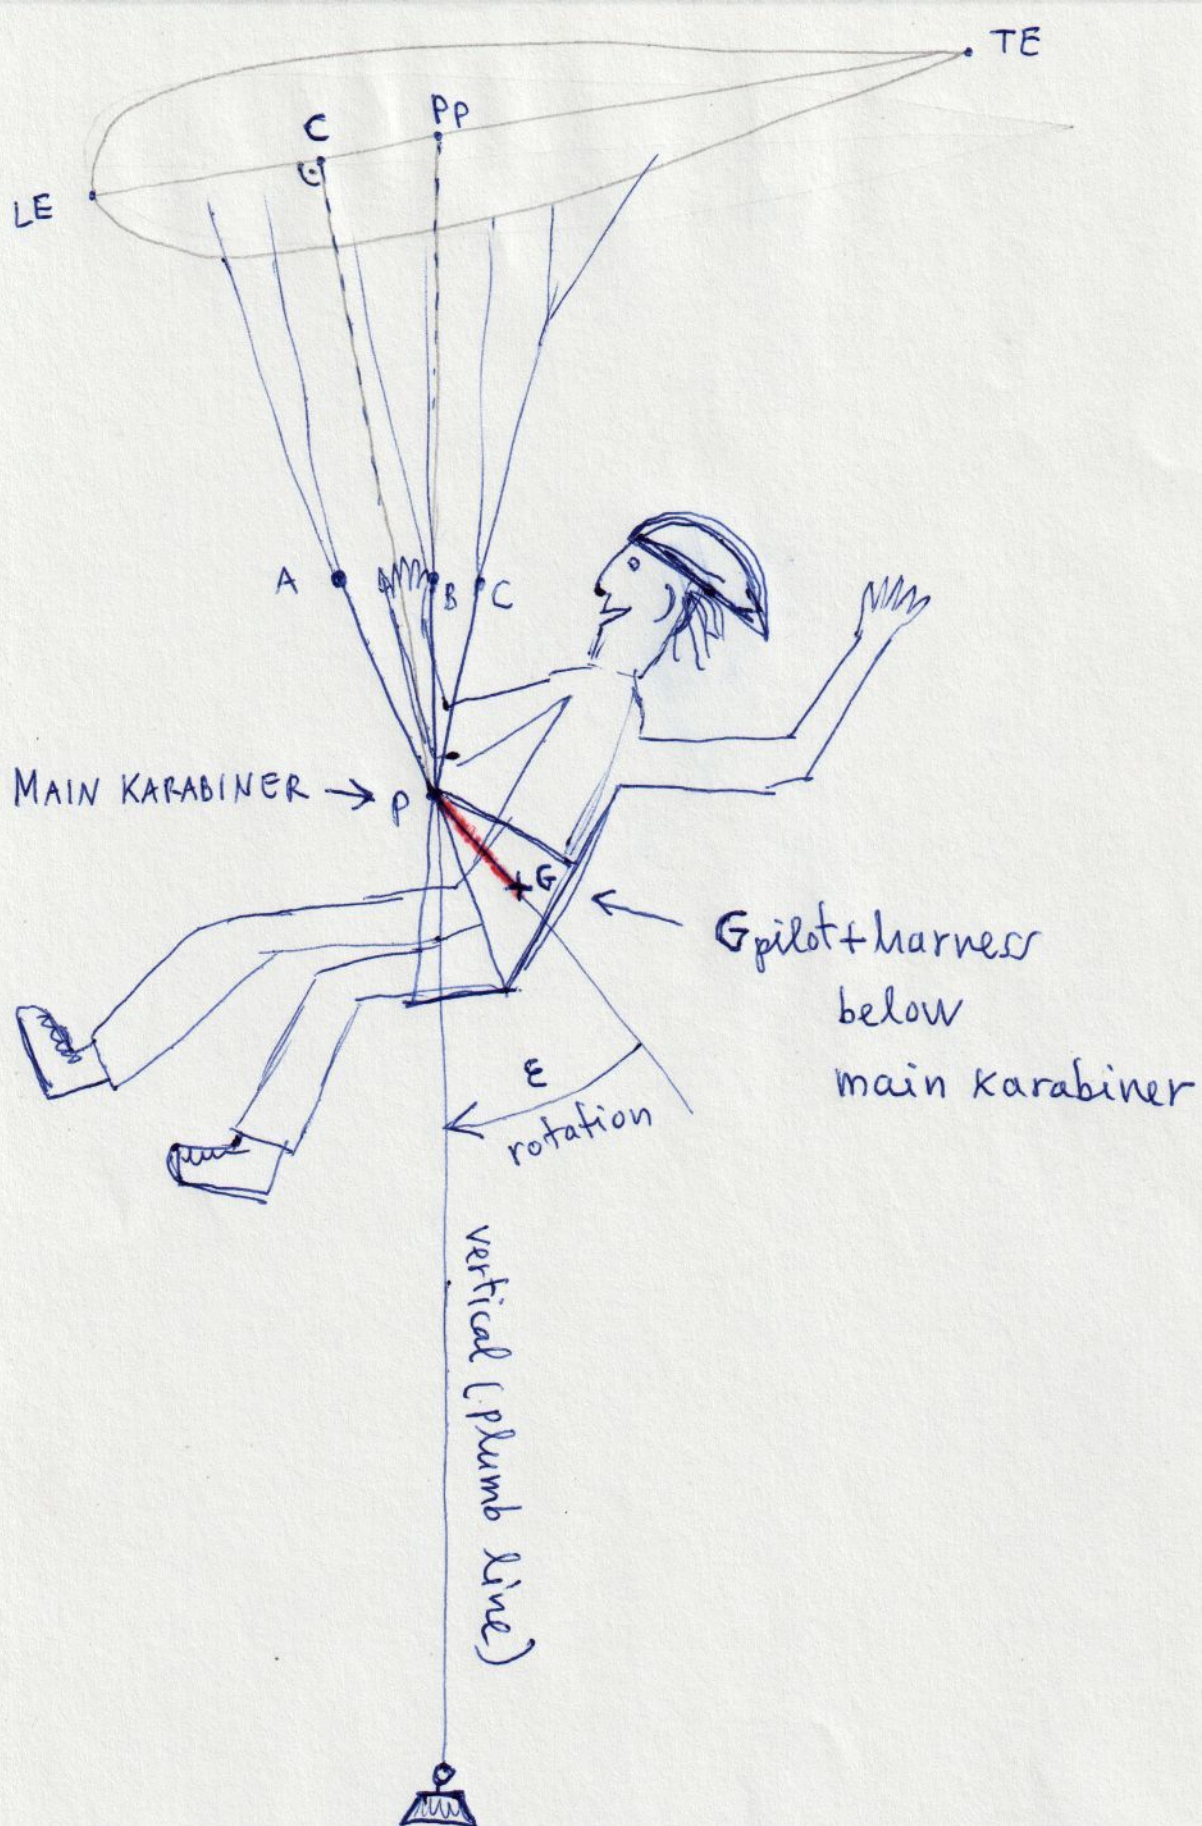 TE
PP
C
LE
A
B
C
MAIN KARABINER →
P
G
Gpilot+harness
below
main karabiner
ε
rotation
vertical (plumb line)